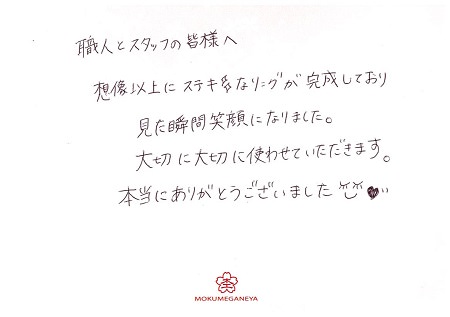 職人とスタッフの皆様へ
想像以上にステキなリングが完成しており
見た瞬間笑顔になりました。
大切に大切に使わせていただきます。
本当にありがとうございました
MOKUMEGANEYA